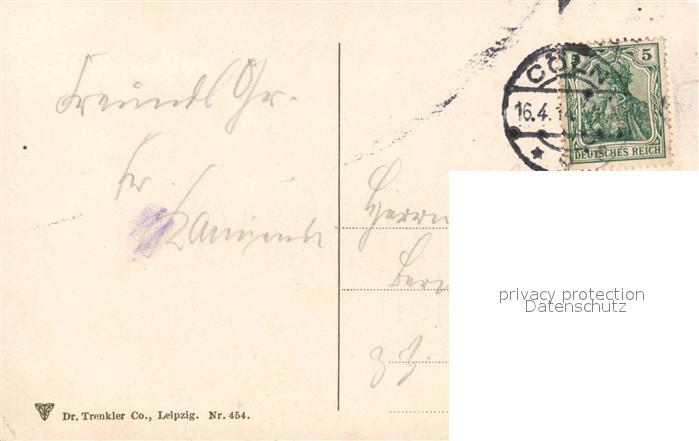 Freundl. Gr.
Fr.
CÖLN
16.4.14
5
DEUTSCHES REICH
Herrn
z. Zt.
privacy protection
Datenschutz
Dr. Trenkler Co., Leipzig. Nr. 454.